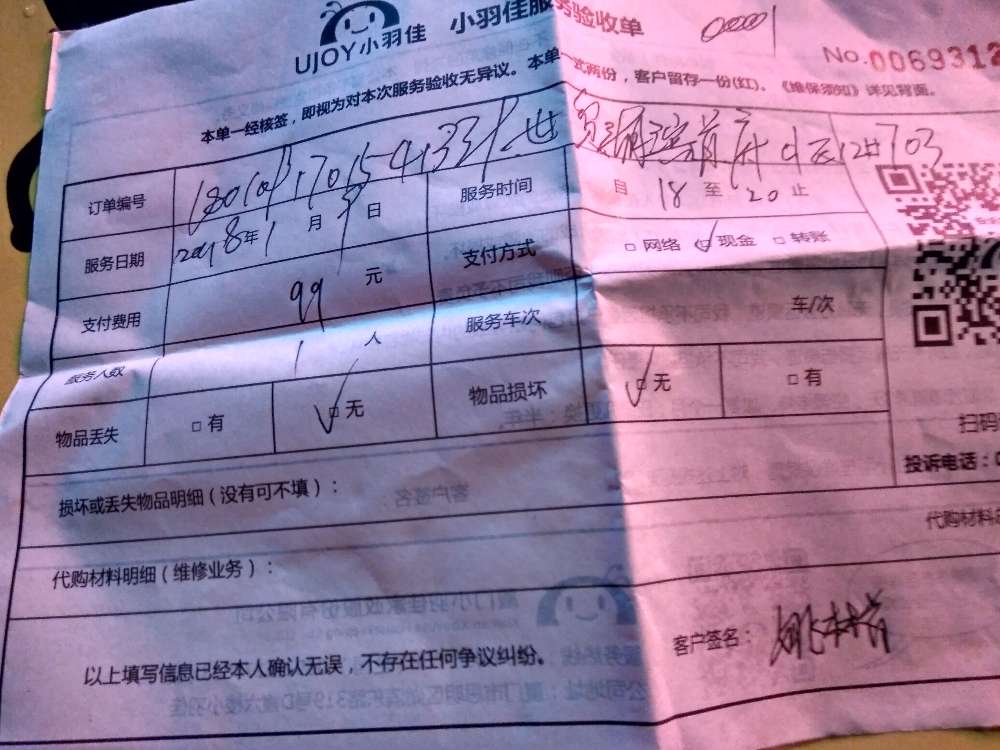 UJOY小羽佳 小羽佳服务验收单
No.0069312
本单一经核签，即视为对本次服务验收无异议。本单一式两份，客户留存一份(红)。《维保须知》详见背面。
订单编号
服务日期 2018年1月9日 服务时间 自 18 至 20 止
支付费用 99 元 支付方式 □网络 ☑现金 □转账
服务人数 1 人 服务车次 车/次
物品丢失 □有 ☑无 物品损坏 ☑无 □有
扫码
投诉电话：0
损坏或丢失物品明细（没有可不填）：
代购材料
代购材料明细（维修业务）：
以上填写信息已经本人确认无误，不存在任何争议纠纷。
客户签名：